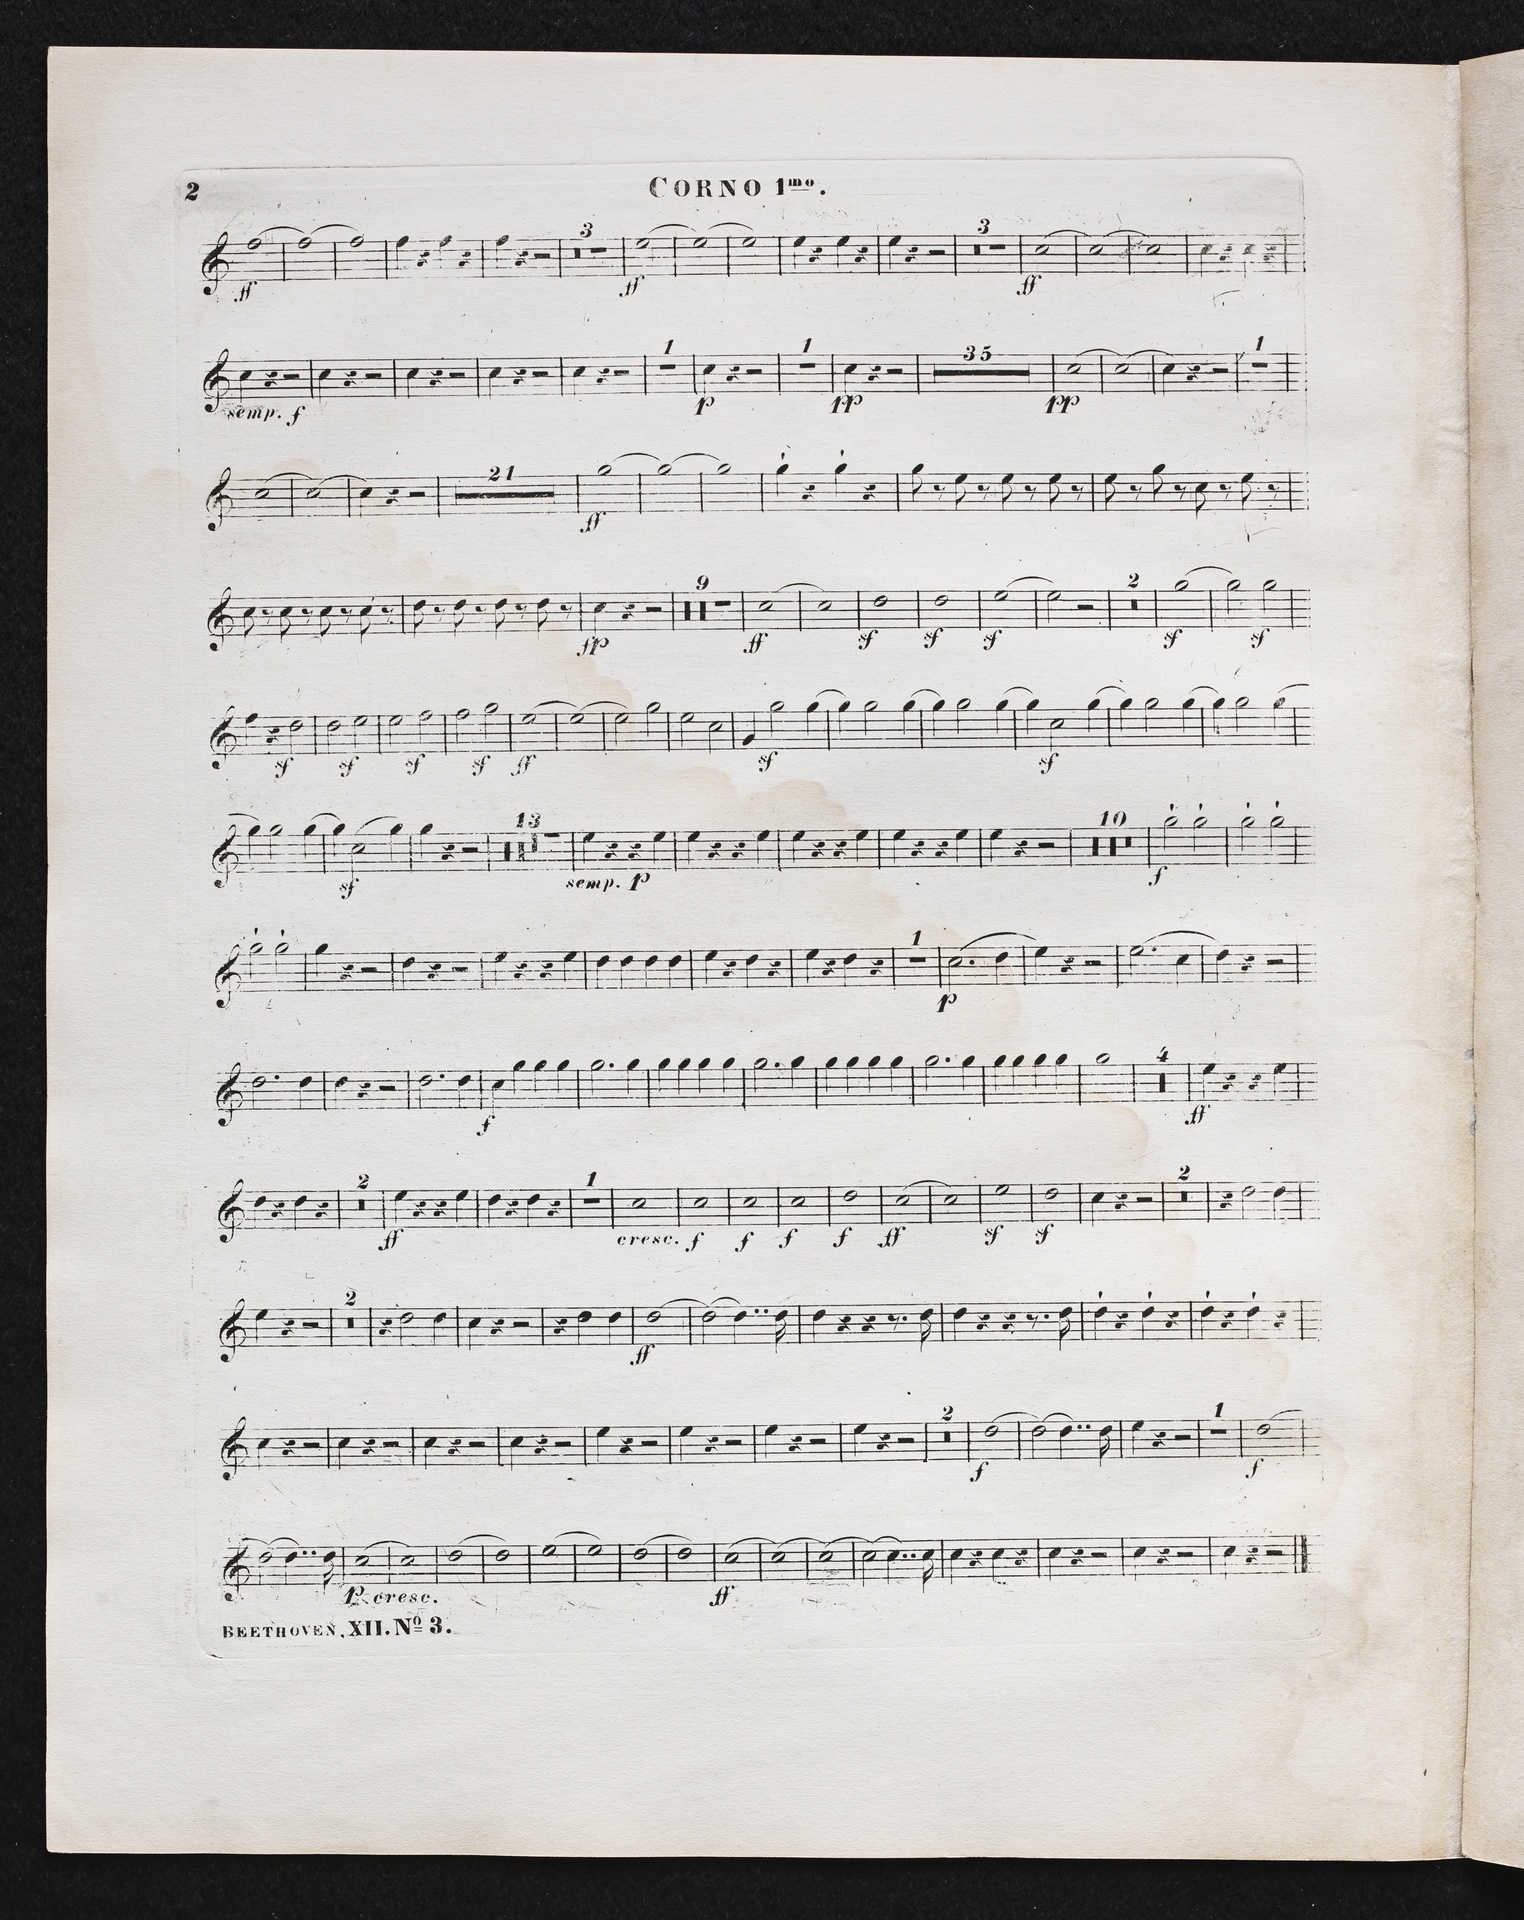 2
CORNO 1mo.
3 3
ff ff ff
1 1 35 1
semp. f p pp pp
21
ff
9 2
fp ff sf sf sf sf sf
sf sf sf sf ff sf sf
13 10
sf semp. p f
1
p
4
f ff
2 1 2
ff cresc. f f f f ff sf sf
2
ff
2 1
f f
p cresc. ff
BEETHOVEN, XII. No 3.